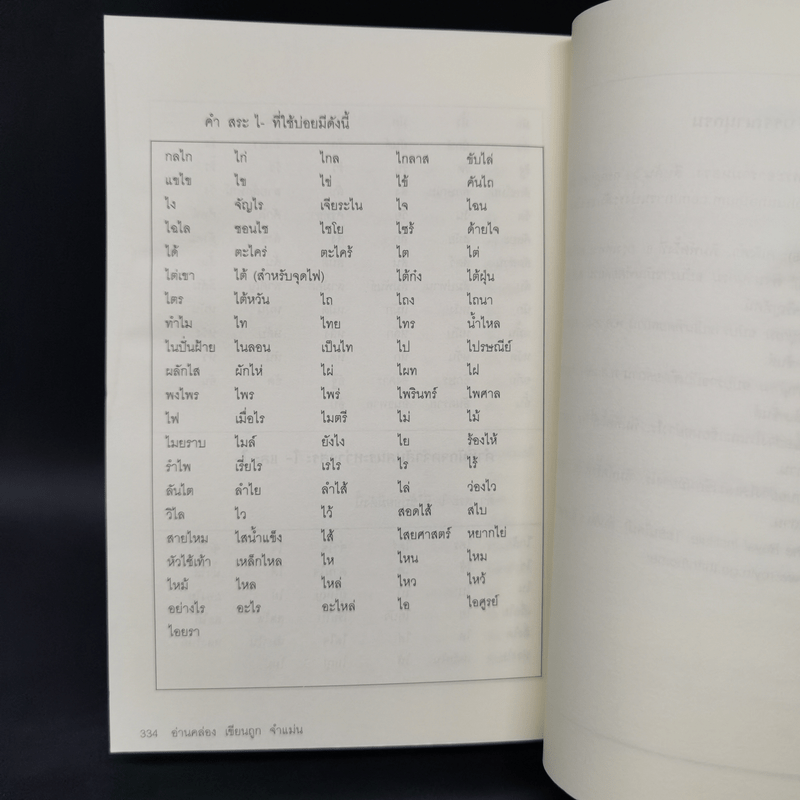 คำ สระ ไ- ที่ใช้บ่อยมีดังนี้
กลไก ไก่ ไกล ไกลาส ขับไล่
แขไข ไข ไข่ ไข้ คันไถ
ไง จัญไร เจียระไน ไจ ไฉน
ไฉไล ซอนไซ ไชโย ไซร้ ด้ายไจ
ได้ ตะไคร่ ตะไคร้ ไต ไต่
ไต่เขา ไต้ (สำหรับจุดไฟ) ไต้ก๋ง ไต้ฝุ่น
ไตร ไต้หวัน ไถ ไถง ไถนา
ทำไม ไท ไทย ไทร น้ำไหล
ไนปั่นฝ้าย ไนลอน เป็นไท ไป ไปรษณีย์
ผลักไส ผักไห่ ไผ่ ไผท ไฝ
พงไพร ไพร ไพร่ ไพรินทร์ ไพศาล
ไฟ เมื่อไร ไมตรี ไม่ ไม้
ไมยราบ ไมล์ ยังไง ไย ร้องไห้
รำไพ เรี่ยไร เรไร ไร ไร้
ลันไต ลำไย ลำไส้ ไล่ ว่องไว
วิไล ไว ไว้ สอดไส้ สไบ
สายไหม ไสน้ำแข็ง ไส้ ไสยศาสตร์ หยากไย่
หัวไช้เท้า เหล็กไหล ไห ไหน ไหม
ไหม้ ไหล ไหล่ ไหว ไหว้
อย่างไร อะไร อะไหล่ ไอ ไอศูรย์
ไอยรา
334 อ่านคล่อง เขียนถูก จำแม่น